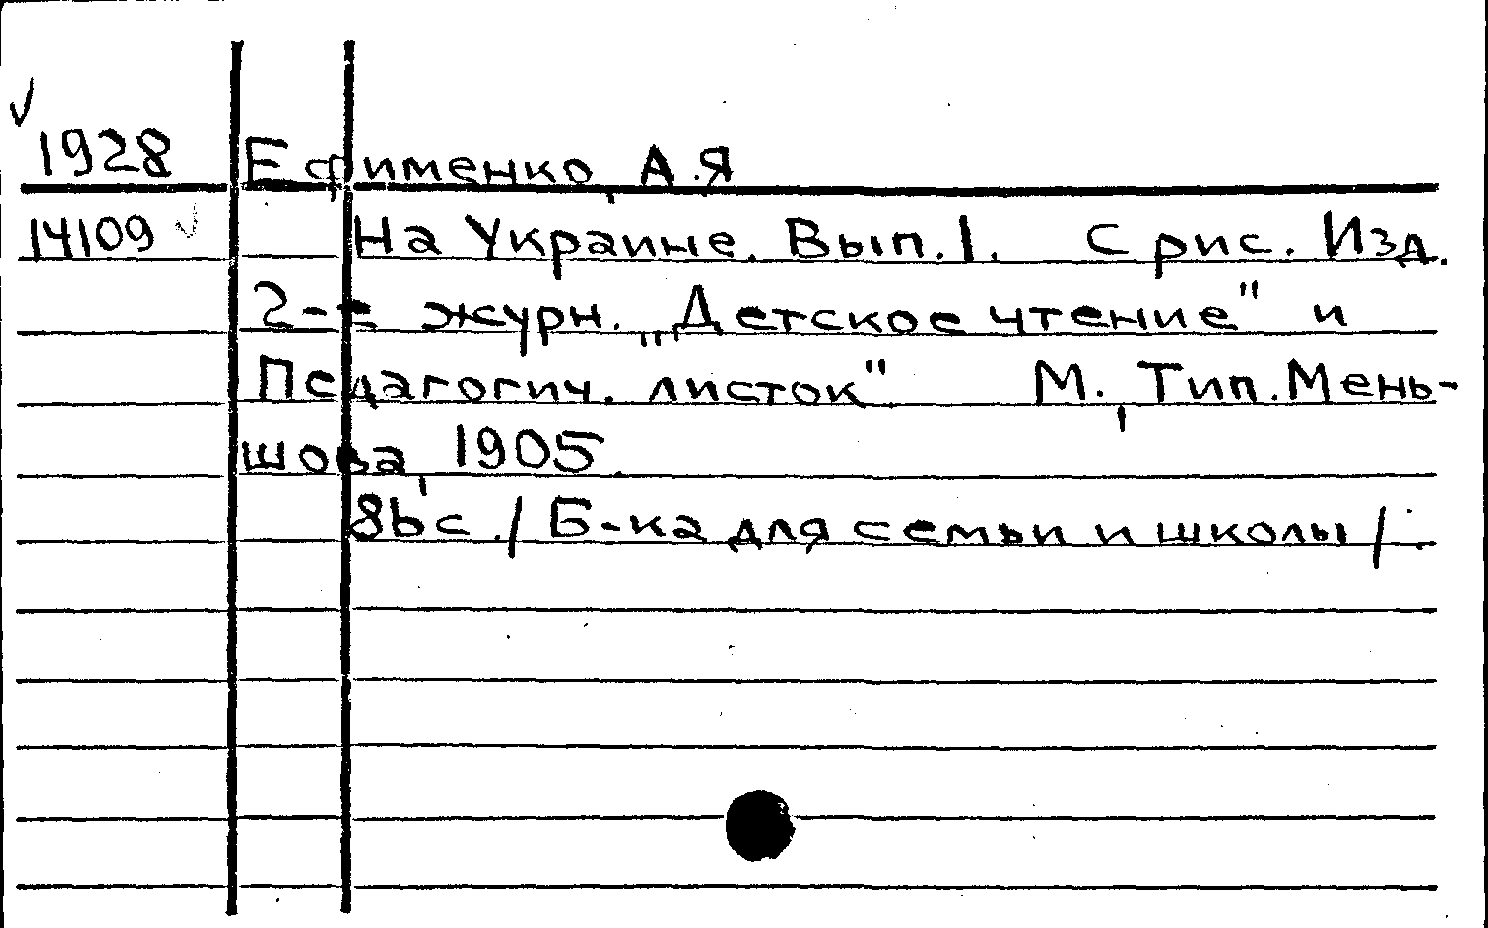 1928 Ефименко, А.Я
14109 На Украине. Вып.1. С рис. Изд.
2-е журн. „Детское чтение" и
Педагогич. листок" М., Тип. Мень-
шова, 1905.
86 с. / Б-ка для семьи и школы /.